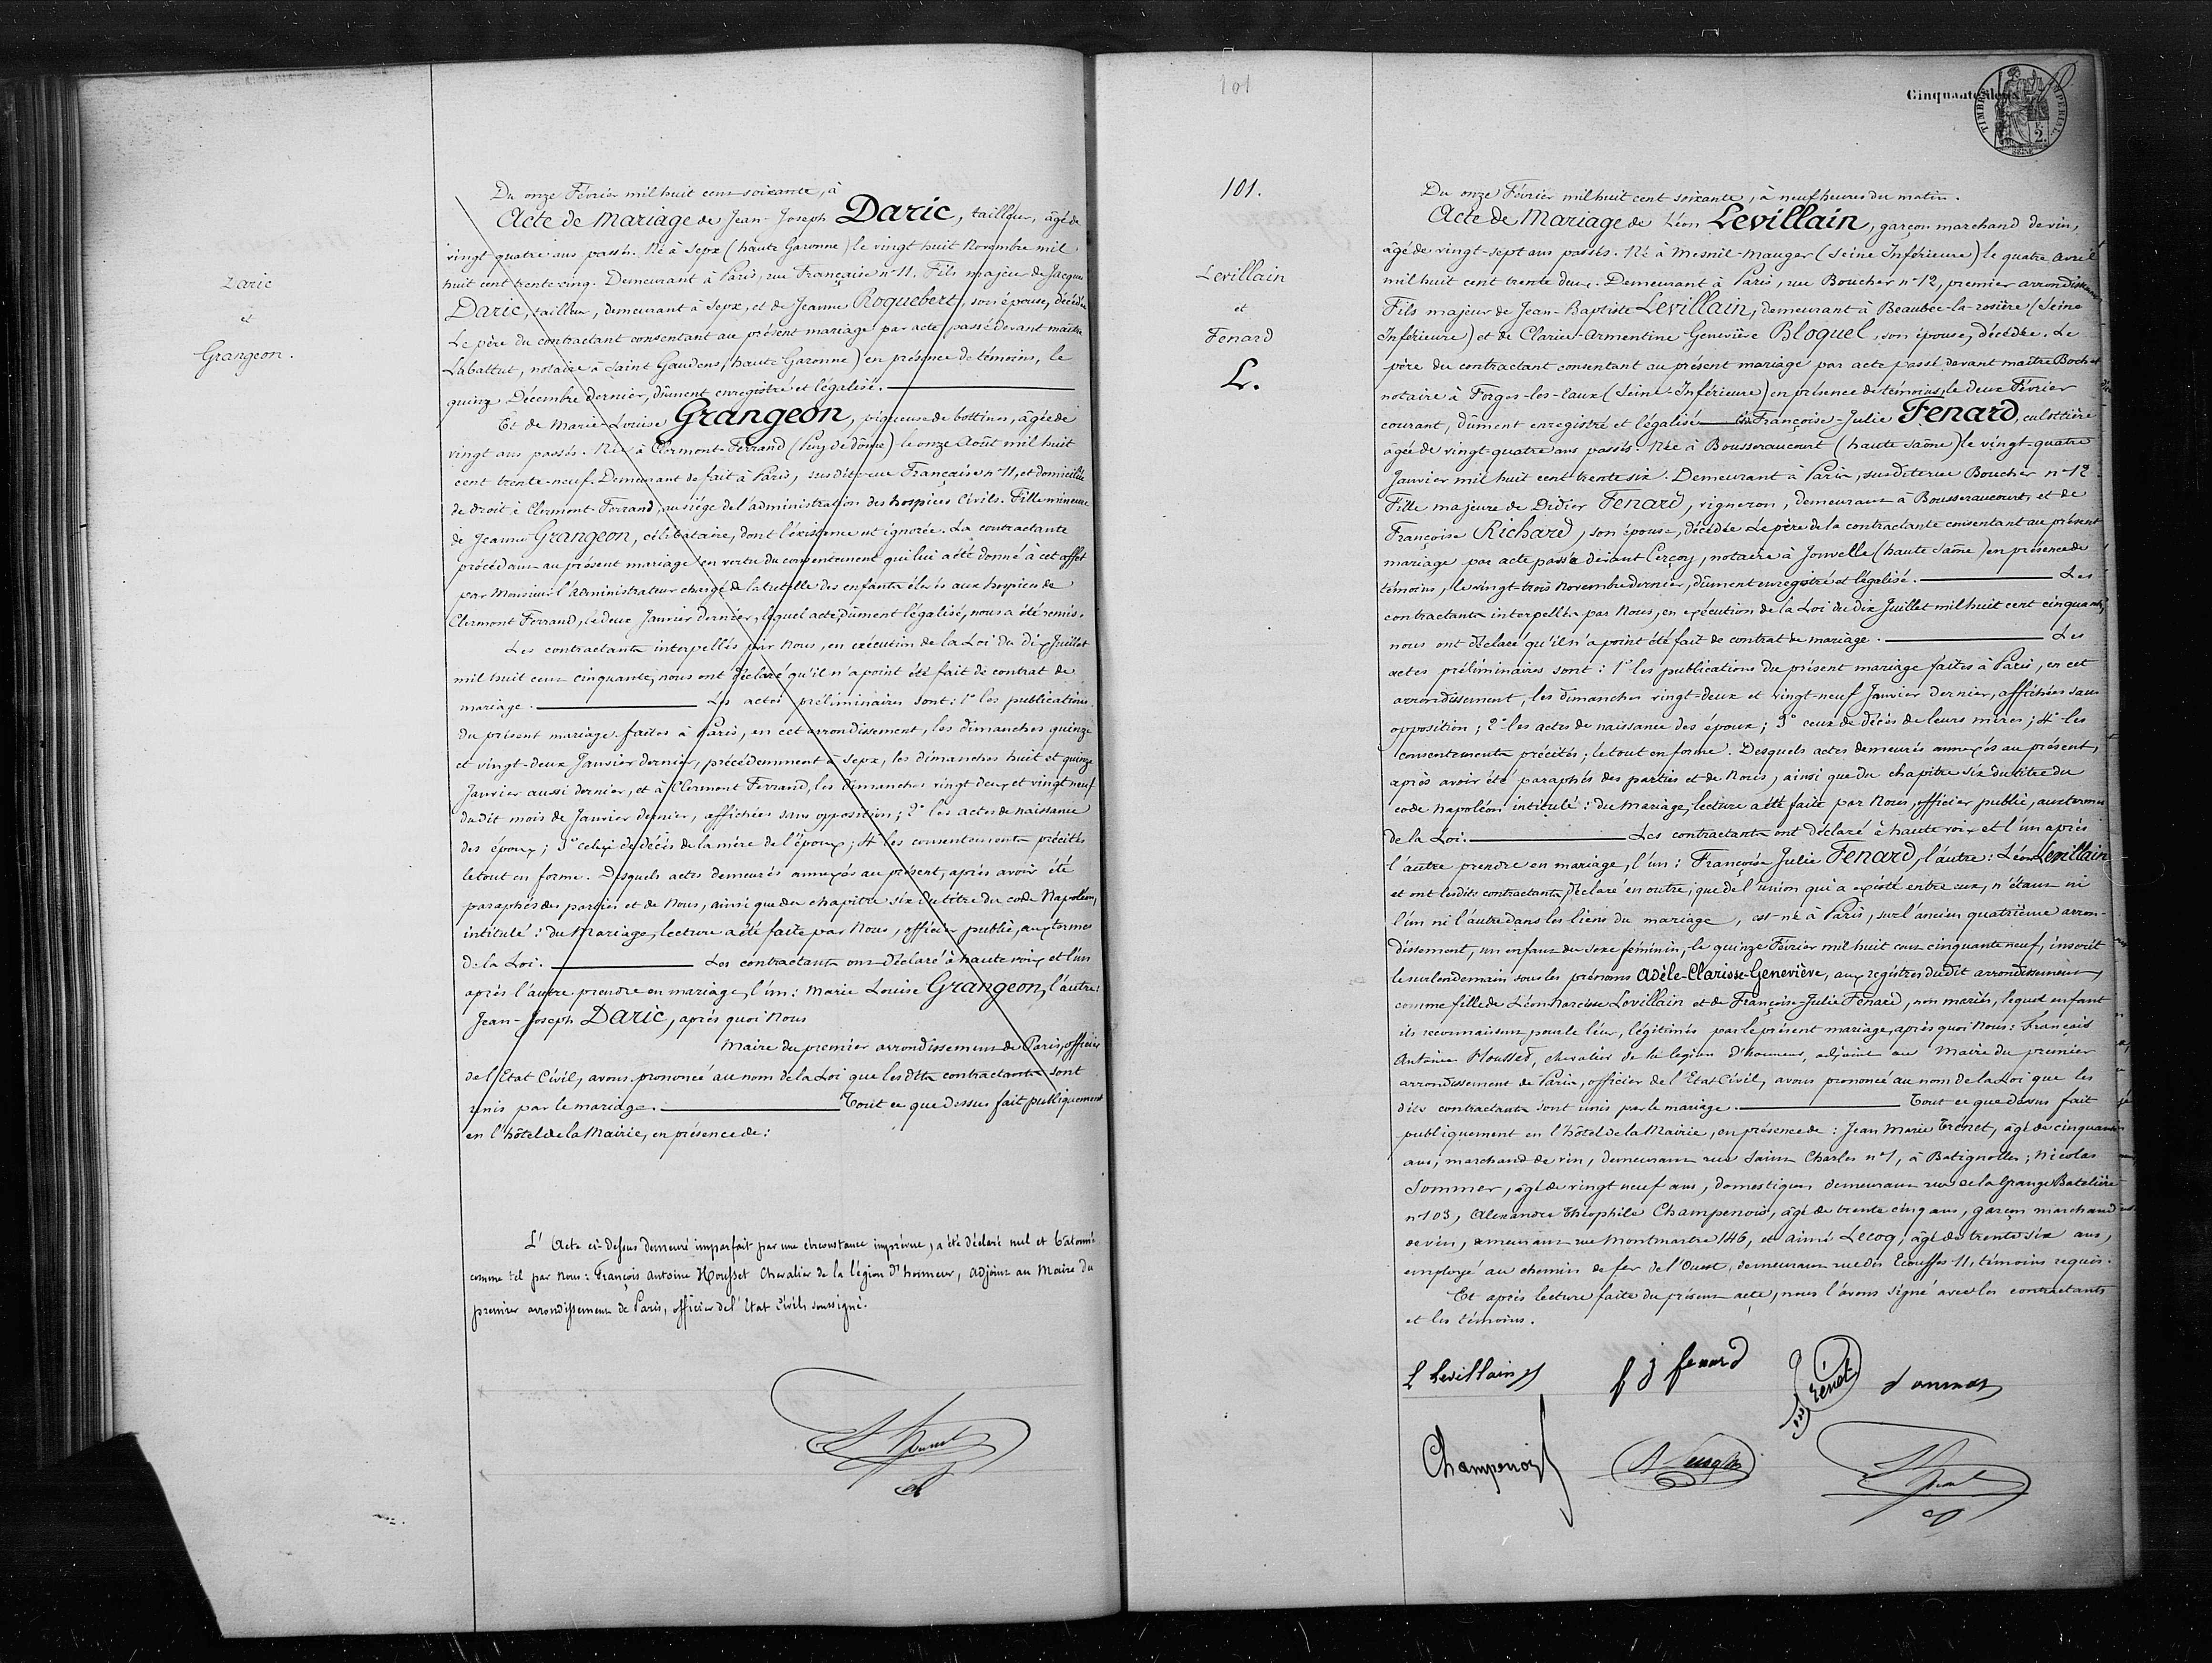 Daric
et
Grangeon.
Du onze Février mil huit cent soixante, à
Acte de Mariage de Jean-Joseph Daric, tailleur, âgé de
vingt quatre ans passés. Né à Sepx (haute Garonne) le vingt huit Novembre mil
huit cent trente cinq. Demeurant à Paris, rue Française n° 11. Fils majeur de Jacques
Daric, tailleur, demeurant à Sepx, et de Jeanne Roquebert, son épouse, décédée
Le père du contractant consentant au présent mariage par acte passé devant maître
Labattut, notaire à Saint Gaudens (haute Garonne) en présence de témoins, le
quinze Décembre dernier, dûment enregistré et légalisé.
Et de Marie-Louise Grangeon, piqueuse de bottines, âgée de
vingt ans passés. Née à Clermont-Ferrand (Puy de Dôme) le onze Août mil huit
cent trente-neuf. Demeurant de fait à Paris, susdite rue Française n° 11, et domiciliée
de droit à Clermont-Ferrand, au siége de l'administration des hospices Civils. Fille mineure
de Jeanne Grangeon, célibataire, dont l'existence est ignorée. La contractante
procédant au présent mariage en vertu du consentement qui lui a été donné à cet effet
par Monsieur l'Administrateur chargé de la tutelle des enfants élevés aux hospices de
Clermont Ferrand, le deux Janvier dernier, lequel acte, dûment légalisé, nous a été remis.
Les contractants interpellés par Nous, en exécution de la Loi du Dix Juillet
mil huit cent cinquante, nous ont déclaré qu'il n'a point été fait de contrat de
mariage. Les actes préliminaires sont: 1° les publications
du présent mariage faites à Paris, en cet arrondissement, les dimanches quinze
et vingt-deux Janvier dernier, précédemment à Sepx, les dimanches huit et quinze
Janvier aussi dernier, et à Clermont Ferrand, les dimanches vingt deux et vingt neuf
dudit mois de Janvier dernier, affichées sans opposition; 2° les actes de naissance
des époux; 3° celui de décès de la mère de l'époux; 4° les consentements précités
le tout en forme. Desquels actes demeurés annexés au présent, après avoir été
paraphés des parties et de Nous, ainsi que du chapitre six du titre du code Napoléon,
intitulé: du Mariage, lecture a été faite par Nous, officier public, aux termes
de la Loi. Les contractants ont déclaré à haute voix et l'un
après l'autre prendre en mariage, l'un: Marie Louise Grangeon, l'autre:
Jean-Joseph Daric, après quoi Nous
Maire du premier arrondissement de Paris, officier
de l'Etat Civil, avons prononcé au nom de la Loi que lesdits contractants sont
unis par le mariage. Tout ce que dessus fait publiquement
en l'hôtel de la Mairie, en présence de:
L'Acte ci-dessus demeuré imparfait par une circonstance imprévue, a été déclaré nul et bâtonné
comme tel par Nous: François Antoine Housset Chevalier de la légion d'honneur, adjoint au Maire du
premier arrondissement de Paris, officier de l'Etat Civil, soussigné.
101
101.
Levillain
et
Fenard
L.
Cinquante deux
TIMBRE IMPÉRIAL
2
Du onze Février mil huit cent soixante, à neuf heures du matin.
Acte de Mariage de Léon Levillain, garçon marchand de vin,
âgé de vingt-sept ans passés. Né à Mesnil-Mauger (Seine Inférieure) le quatre Avril
mil huit cent trente deux. Demeurant à Paris, rue Boucher n° 12, premier arrondissement
Fils majeur de Jean-Baptiste Levillain, demeurant à Beaubec-la-rosière (Seine
Inférieure) et de Clarice-Armentine Geneviève Bloquel, son épouse, décédée. Le
père du contractant consentant au présent mariage par acte passé devant maître Bochet
notaire à Forges-les-Eaux (Seine-Inférieure) en présence de témoins, le deux Février
courant, dûment enregistré et légalisé Et Françoise-Julie Fenard, culottière
âgée de vingt-quatre ans passés. Née à Bousseraucourt (haute Saône) le vingt-quatre
Janvier mil huit cent trente six. Demeurant à Paris, susdite rue Boucher n° 12
Fille majeure de Didier Fenard, vigneron, demeurant à Bousseraucourt, et de
Françoise Richard, son épouse, décédée Le père de la contractante consentant au présent
mariage par acte passé devant Cerçoy, notaire à Jonvelle (haute Saône) en présence de
témoins, le vingt trois Novembre dernier, dûment enregistré et légalisé. Les
contractants interpellés par Nous, en exécution de la Loi du dix Juillet mil huit cent cinquante,
nous ont déclaré qu'il n'a point été fait de contrat de mariage. Les
actes préliminaires sont: 1° les publications du présent mariage faites à Paris, en cet
arrondissement, les dimanches vingt-deux et vingt-neuf Janvier dernier, affichées sans
opposition; 2° les actes de naissance des époux; 3° ceux de décès de leurs mères; 4° les
consentements précités; le tout en forme. Desquels actes demeurés annexés au présent,
après avoir été paraphés des parties et de Nous, ainsi que du chapitre six du titre du
code Napoléon intitulé: du Mariage, lecture a été faite par Nous, officier public, aux termes
de la Loi. Les contractants ont déclaré à haute voix et l'un après
l'autre prendre en mariage, l'un: Françoise Julie Fenard, l'autre: Léon Levillain
et ont lesdits contractants, déclaré en outre, que de l'union qui a existé entre eux, n'étant ni
l'un ni l'autre dans les liens du mariage, est né à Paris, sur l'ancien quatrième arron-
dissement, un enfant du sexe féminin, le quinze Février mil huit cent cinquante neuf, inscrit
le surlendemain sous les prénoms Adèle-Clarisse-Geneviève, aux registres dudit arrondissement,
comme fille de Léon Narcisse Levillain et de Françoise-Julie Fenard, non mariés, lequel enfant
ils reconnaissent pour le leur, légitimés par le présent mariage, après quoi Nous: François
Antoine Housset, chevalier de la légion d'honneur, adjoint au Maire du premier
arrondissement de Paris, officier de l'Etat Civil, avons prononcé au nom de la Loi que les
dits contractants sont unis par le mariage. Tout ce que dessus fait
publiquement en l'hôtel de la Mairie, en présence de: Jean Marie Trénet, âgé de cinquante
ans, marchand de vin, demeurant rue Saint Charles n° 1, à Batignolles; Nicolas
Sommer, âgé de vingt neuf ans, domestique, demeurant rue de la Grange Batelière
n° 103, Alexandre Théophile Champenois, âgé de trente cinq ans, garçon marchand
de vin, demeurant rue Montmartre 146, et Aimé Lecoq, âgé de trente six ans,
employé au chemin de fer de l'Ouest, demeurant rue des Ecouffes 11, témoins requis.
Et après lecture faite du présent acte, nous l'avons signé avec les contractants
et les témoins.
L Levillain
f j fenard
Trénet
Sommer
Champenois